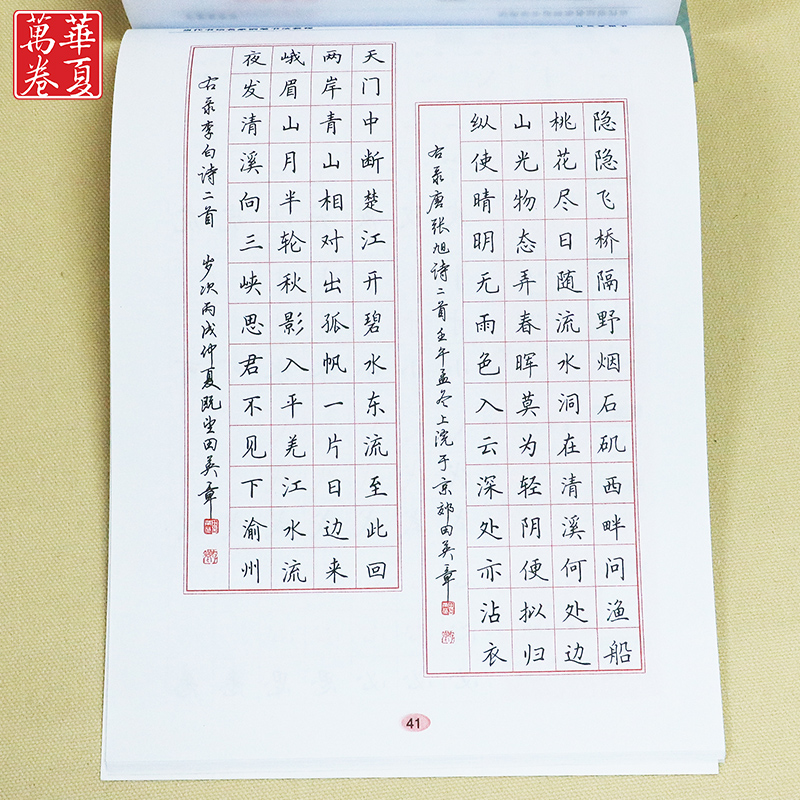 華夏
萬卷
隐隐飞桥隔野烟石矶西畔问渔船
桃花尽日随流水洞在清溪何处边
山光物态弄春晖莫为轻阴便拟归
纵使晴明无雨色入云深处亦沾衣
右录唐张旭诗二首壬午孟冬上浣于京郊田英章
天门中断楚江开碧水东流至此回
两岸青山相对出孤帆一片日边来
峨眉山月半轮秋影入平羌江水流
夜发清溪向三峡思君不见下渝州
右录李白诗二首 岁次丙戌仲夏既望田英章
41